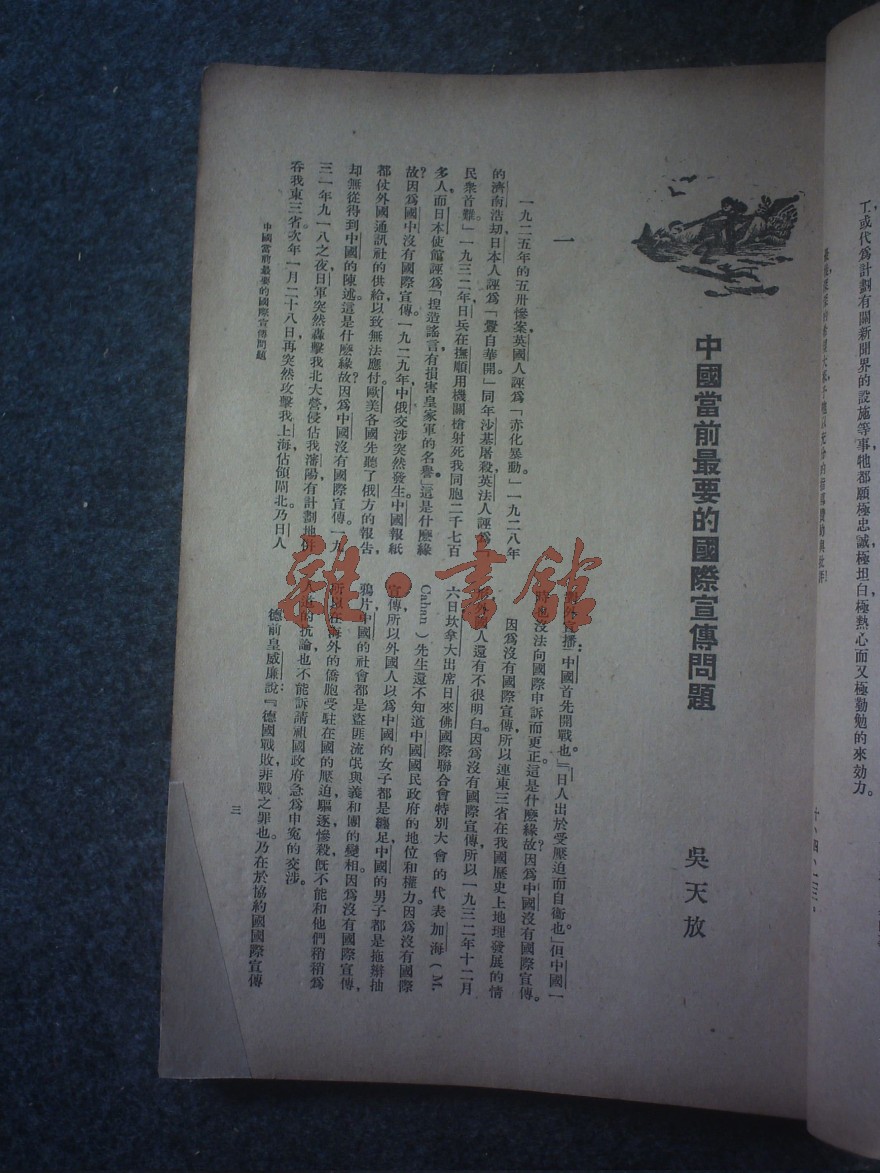 中國當前最要的國際宣傳問題
吳天放
一
一九二五年的五卅慘案英國人誣爲「赤化暴動」一九二八年
的濟南浩劫日本人誣爲「釁自華開」同年沙基屠殺英法人誣爲「
民衆首難」一九三二年日兵在撫順用機關槍射死我同胞二千七百
多人而日本使館誣爲「揑造謠言有損害皇家軍的名譽」這是什麽緣
故？因爲國中沒有國際宣傳。一九二九年中俄交涉突然發生。中國報紙
都仗外國通訊社的供給以致無法應付。歐美各國先聽了俄方的報告，
却無從得到中國的陳述。這是什麽緣故？因爲中國沒有國際宣傳。一九
三一年九一八之夜日軍突然轟擊我北大營侵佔我瀋陽有計劃地併
吞我東三省。次年一月二十八日，再突然攻擊我上海佔領閘北乃日人
外宣播：「中國首先開戰也」『日人出於受壓迫而自衞也」但中國一
也沒法向國際申訴而更正。這是什麽緣故？因爲中國沒有國際宣傳。
因爲沒有國際宣傳，所以連東三省在我國歷史上地理發展的情
外國人還有不很明白。因爲沒有國際宣傳，所以一九三二年十二月
六日坎拿大出席日來佛國際聯合會特別大會的代表加海（M.
Cahan）先生還不知道中國國民政府的地位和權力。因爲沒有國際
宣傳所以外國人以爲中國的女子都是纏足中國的男子都是拖辮抽
鴉片中國的社會都是盜匪流氓與義和團的變相。因爲沒有國際宣傳，
所以在海外的僑胞受駐在國的壓迫驅逐慘殺旣不能和他們稍稍爲
人道的抗論也不能訴請祖國政府急爲申寃的交涉。
德前皇威廉說：『德國戰敗非戰之罪也乃在於協約國國際宣傳
中國當前最要的國際宣傳問題
三
工或代爲計劃有關新聞界的設施等事牠都願極忠誠極坦白極熱心而又極勤勉的來効力。
雜·書館